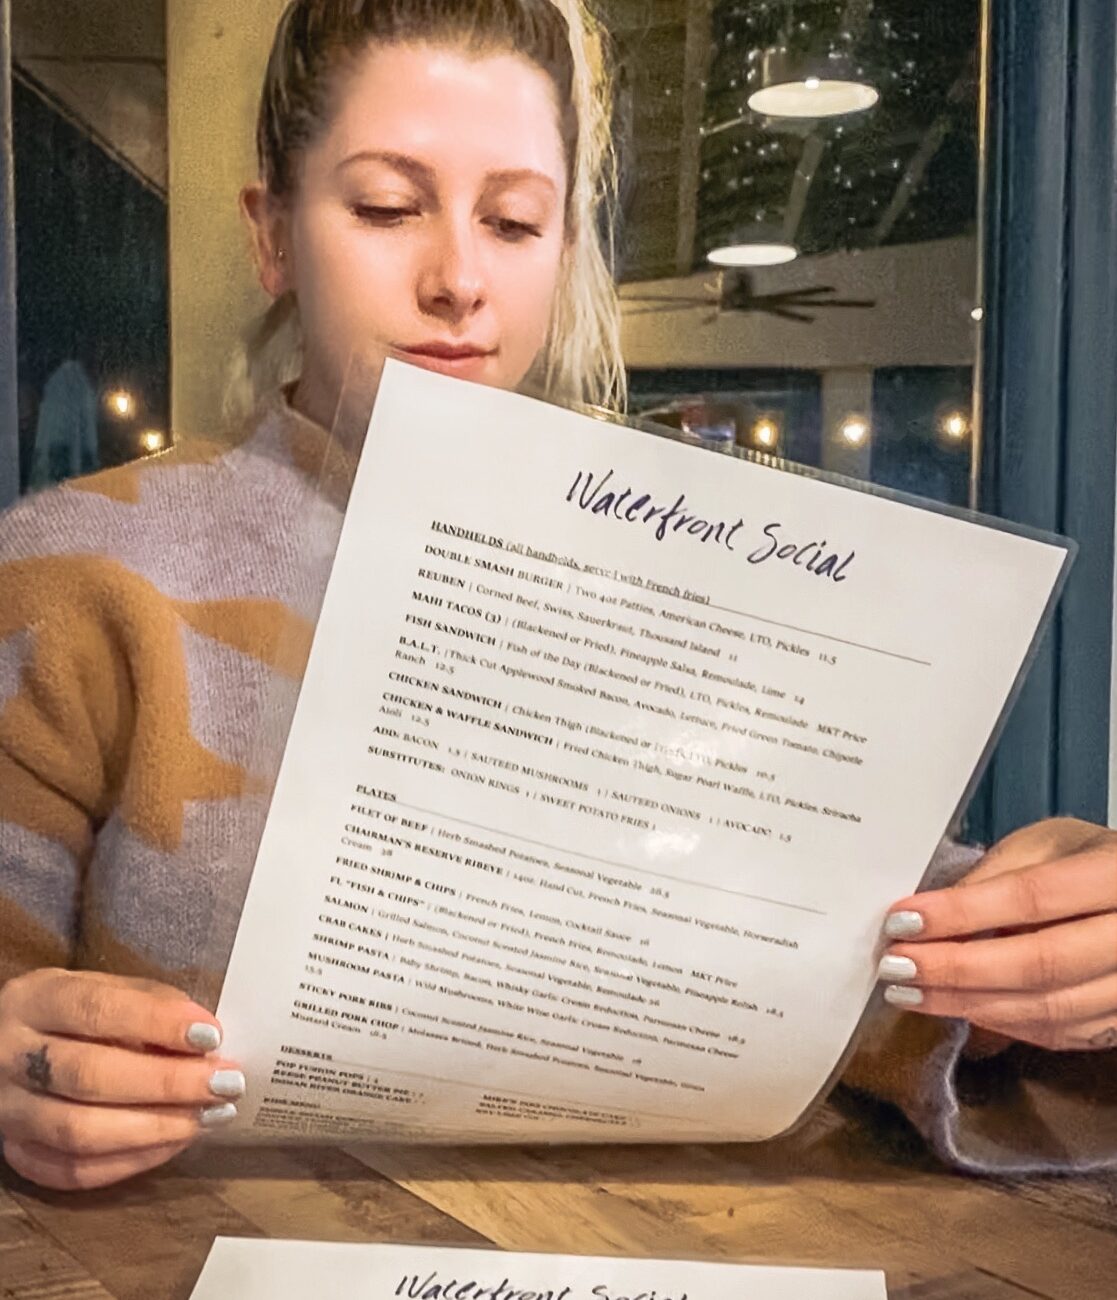 Waterfront Social
HANDHELDS (all handhelds, served with French fries)
DOUBLE SMASH BURGER | Two 4oz Patties, American Cheese, LTO, Pickles 11.5
REUBEN | Corned Beef, Swiss, Sauerkraut, Thousand Island 11
MAHI TACOS (3) | (Blackened or Fried), Pineapple Salsa, Remoulade, Lime 14
FISH SANDWICH | Fish of the Day (Blackened or Fried), LTO, Pickles, Remoulade MKT Price
B.A.L.T. (Thick Cut Applewood Smoked Bacon, Avocado, Lettuce, Fried Green Tomato, Chipotle
Ranch 12.5
CHICKEN SANDWICH | Chicken Thigh (Blackened or Fried), LTO, Pickles 10.5
CHICKEN & WAFFLE SANDWICH | Fried Chicken Thigh, Sugar Pearl Waffle, LTO, Pickles, Sriracha
Aioli 12.5
ADD: BACON 1.5 | SAUTEED MUSHROOMS 1 | SAUTEED ONIONS 1 | AVOCADO 1.5
SUBSTITUTES: ONION RINGS 1 | SWEET POTATO FRIES 1
PLATES
FILET OF BEEF | Herb Smashed Potatoes, Seasonal Vegetable 28.5
CHAIRMAN'S RESERVE RIBEYE | 14oz. Hand Cut, French Fries, Seasonal Vegetable, Horseradish
Cream 38
FRIED SHRIMP & CHIPS | French Fries, Lemon, Cocktail Sauce 16
FL "FISH & CHIPS" | (Blackened or Fried), French Fries, Remoulade, Lemon MKT Price
SALMON | Grilled Salmon, Coconut Scented Jasmine Rice, Seasonal Vegetable, Pineapple Relish 18.5
CRAB CAKES | Herb Smashed Potatoes, Seasonal Vegetable, Remoulade 26
SHRIMP PASTA | Baby Shrimp, Bacon, Whisky Garlic Cream Reduction, Parmesan Cheese 18.5
MUSHROOM PASTA | Wild Mushrooms, White Wine Garlic Cream Reduction, Parmesan Cheese
15.5
STICKY PORK RIBS | Coconut Scented Jasmine Rice, Seasonal Vegetable 18
GRILLED PORK CHOP | Molasses Brined, Herb Smashed Potatoes, Seasonal Vegetable,
Mustard Cream 18.5
DESSERTS
POP FUSION POPS | 4
REESE PEANUT BUTTER PIE
INDIAN RIVER ORANGE CAKE
Waterfront Social